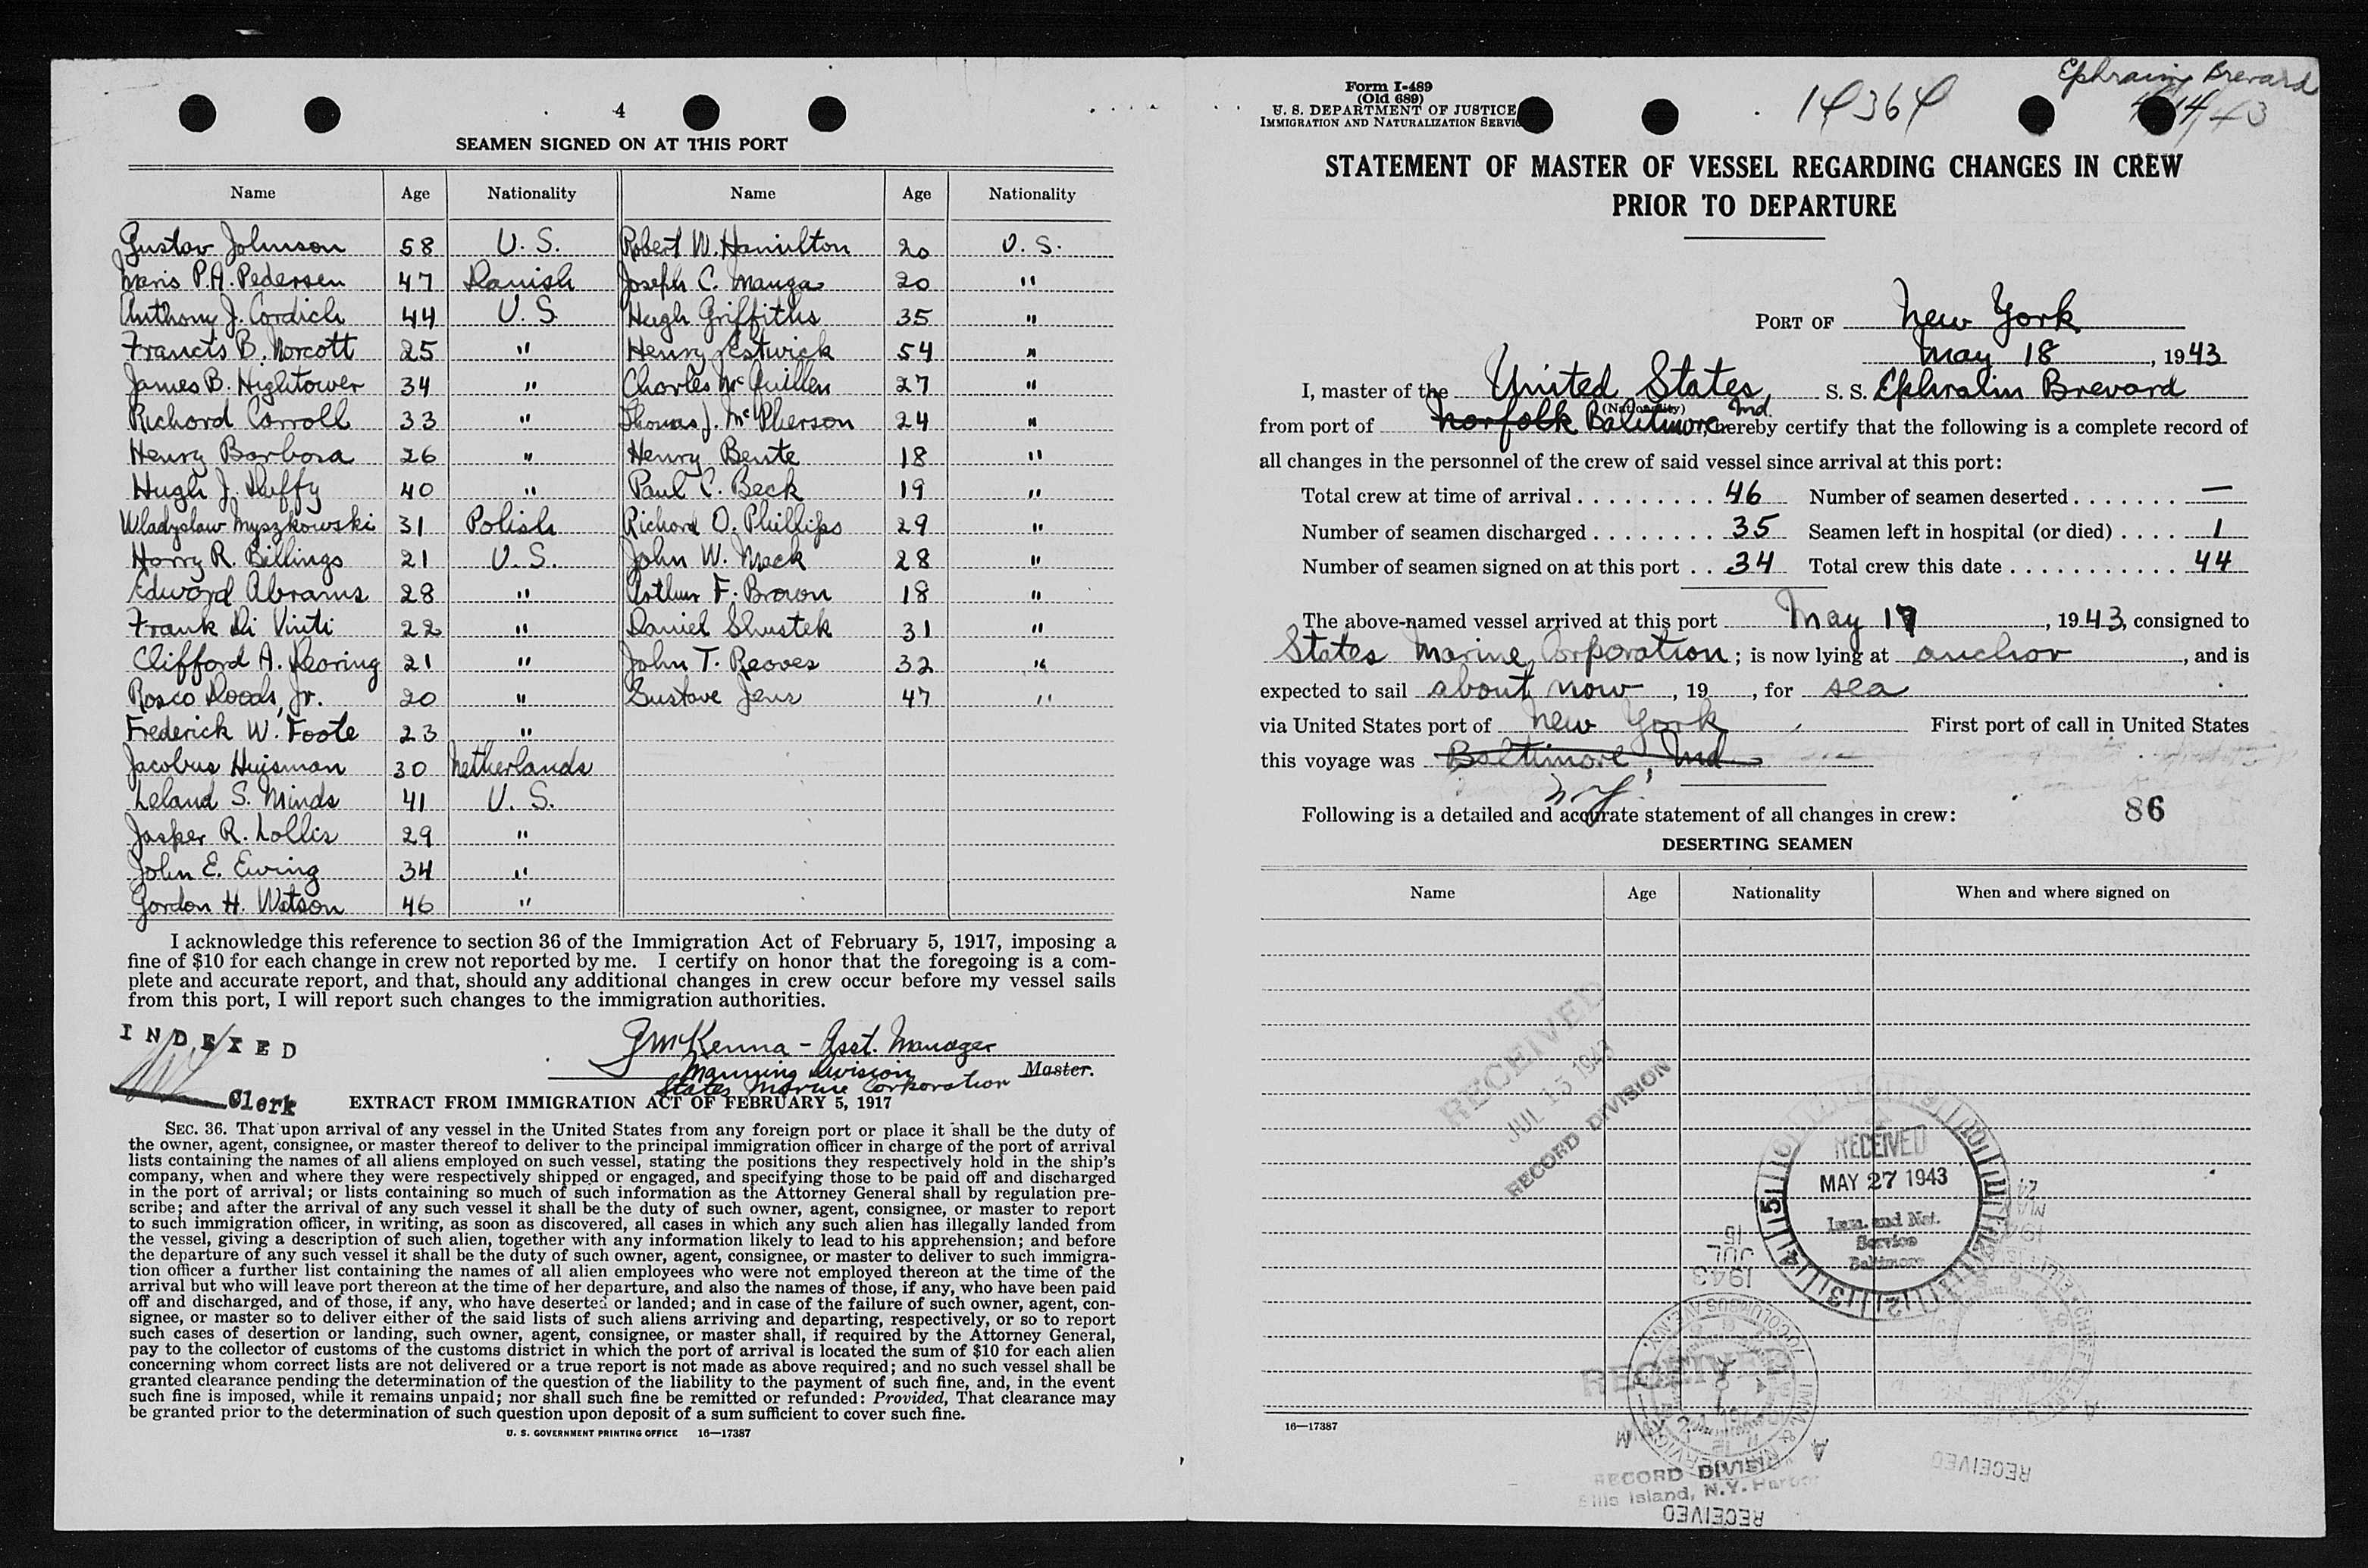 4
SEAMEN SIGNED ON AT THIS PORT
Name Age Nationality Name Age Nationality
Gustav Johnson 58 U. S. Robert W. Hamilton 20 U. S.
P.A. Pedersen 47 Danish Joseph C. Manga 20 "
Anthony J. Cordich 44 U. S. Hugh Griffiths 35 "
Francis B. Norcott 25 " Henry Estwick 54 "
James B. Hightower 34 " Charles McQuillen 27 "
Richard Carroll 33 " Thomas J. McPherson 24 "
Henry Barbosa 26 " Henry Bente 18 "
Hugh J. Duffy 40 " Paul C. Beck 19 "
Wladyslaw Myszkowski 31 Polish Richard O. Phillips 29 "
Harry R. Billings 21 U. S. John W. Mack 28 "
Edward Abrams 28 " Arthur F. Brown 18 "
Frank Di Viriti 22 " Daniel Shustek 31 "
Clifford A. Dearing 21 " John T. Reaves 32 "
Rosco Doods, Jr. 20 " Gustave Jens 47 "
Frederick W. Foote 23 "
Jacobus Huisman 30 Netherlands
Leland S. Minds 41 U. S.
Jasper R. Lollis 29 "
John E. Ewing 34 "
Gordon H. Watson 46 "
I acknowledge this reference to section 36 of the Immigration Act of February 5, 1917, imposing a
fine of $10 for each change in crew not reported by me. I certify on honor that the foregoing is a com-
plete and accurate report, and that, should any additional changes in crew occur before my vessel sails
from this port, I will report such changes to the immigration authorities.
INDEXED
Clerk
McKenna - Asst. Manager
Manning Division
States Marine Corporation Master.
EXTRACT FROM IMMIGRATION ACT OF FEBRUARY 5, 1917
SEC. 36. That upon arrival of any vessel in the United States from any foreign port or place it shall be the duty of
the owner, agent, consignee, or master thereof to deliver to the principal immigration officer in charge of the port of arrival
lists containing the names of all aliens employed on such vessel, stating the positions they respectively hold in the ship's
company, when and where they were respectively shipped or engaged, and specifying those to be paid off and discharged
in the port of arrival; or lists containing so much of such information as the Attorney General shall by regulation pre-
scribe; and after the arrival of any such vessel it shall be the duty of such owner, agent, consignee, or master to report
to such immigration officer, in writing, as soon as discovered, all cases in which any such alien has illegally landed from
the vessel, giving a description of such alien, together with any information likely to lead to his apprehension; and before
the departure of any such vessel it shall be the duty of such owner, agent, consignee, or master to deliver to such immigra-
tion officer a further list containing the names of all alien employees who were not employed thereon at the time of the
arrival but who will leave port thereon at the time of her departure, and also the names of those, if any, who have been paid
off and discharged, and of those, if any, who have deserted or landed; and in case of the failure of such owner, agent, con-
signee, or master so to deliver either of the said lists of such aliens arriving and departing, respectively, or so to report
such cases of desertion or landing, such owner, agent, consignee, or master shall, if required by the Attorney General,
pay to the collector of customs of the customs district in which the port of arrival is located the sum of $10 for each alien
concerning whom correct lists are not delivered or a true report is not made as above required; and no such vessel shall be
granted clearance pending the determination of the question of the liability to the payment of such fine, and, in the event
such fine is imposed, while it remains unpaid; nor shall such fine be remitted or refunded: Provided, That clearance may
be granted prior to the determination of such question upon deposit of a sum sufficient to cover such fine.
U. S. GOVERNMENT PRINTING OFFICE 16—17387
Form I-489
(Old 689)
U. S. DEPARTMENT OF JUSTICE
IMMIGRATION AND NATURALIZATION SERVIC
14364
Ephraim Brevard
STATEMENT OF MASTER OF VESSEL REGARDING CHANGES IN CREW
PRIOR TO DEPARTURE
PORT OF New York
May 18, 1943
I, master of the United States S. S. Ephraim Brevard
(Nationality)
from port of Norfolk Baltimore Md. hereby certify that the following is a complete record of
all changes in the personnel of the crew of said vessel since arrival at this port:
Total crew at time of arrival 46 Number of seamen deserted —
Number of seamen discharged 35 Seamen left in hospital (or died) 1
Number of seamen signed on at this port 34 Total crew this date 44
The above-named vessel arrived at this port May 17, 1943, consigned to
States Marine Corporation; is now lying at anchor, and is
expected to sail about now, 19 , for sea
via United States port of New York First port of call in United States
this voyage was Baltimore, Md
N.Y.
Following is a detailed and accurate statement of all changes in crew: 86
DESERTING SEAMEN
Name Age Nationality When and where signed on
RECEIVED
JUL 15 1943
RECORD DIVISION
RECEIVED
MAY 27 1943
Imm. and Nat.
Service
Baltimore
JUL 15
1943
RECEIVED
RECORD DIVISION
Ellis Island, N.Y. Harbor
RECEIVED
RECEIVED
16—17387